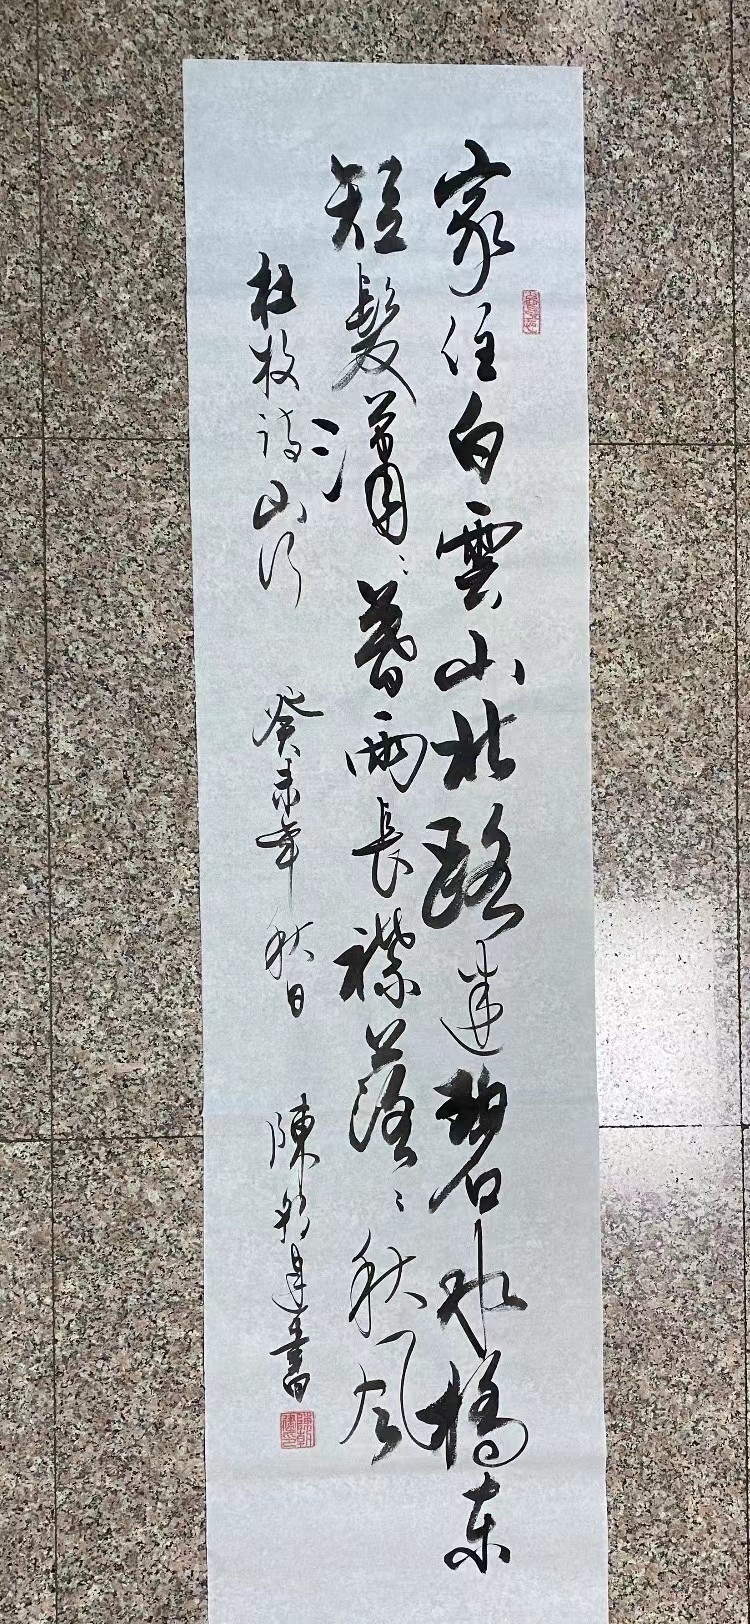 家住白雲山北路迷碧水橋東
短髮瀟〻暮雨長襟落〻秋風
杜牧詩山行 癸未年秋日 陳 書